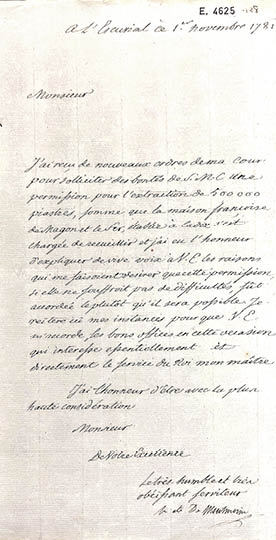 E. 4625
A L'Escurial ce 1er novembre 1781
Monsieur
J'ai reçu de nouveaux ordres de ma cour
pour solliciter des bontés de S. M. C. une
permission pour l'extraction de 500 000
piastres, somme que la maison françoise
de Magon et le Fer, établie à Cadix, s'est
chargée de recueillir et j'ai eu l'honneur
d'expliquer de vive voix à V. E. les raisons
qui me faisoient desirer que cette permission
si elle ne souffroit pas de difficultés, fût
accordée le plutôt qu'il sera possible. Je
réitere ici mes instances pour que V. E.
m'accorde ses bons offices en cette occasion
qui interesse essentiellement et
directement le service du Roi mon maître
J'ai l'honneur d'être avec la plus
haute considération
Monsieur
De Votre Excellence
Le très humble et très
obéissant serviteur
de Montmorin